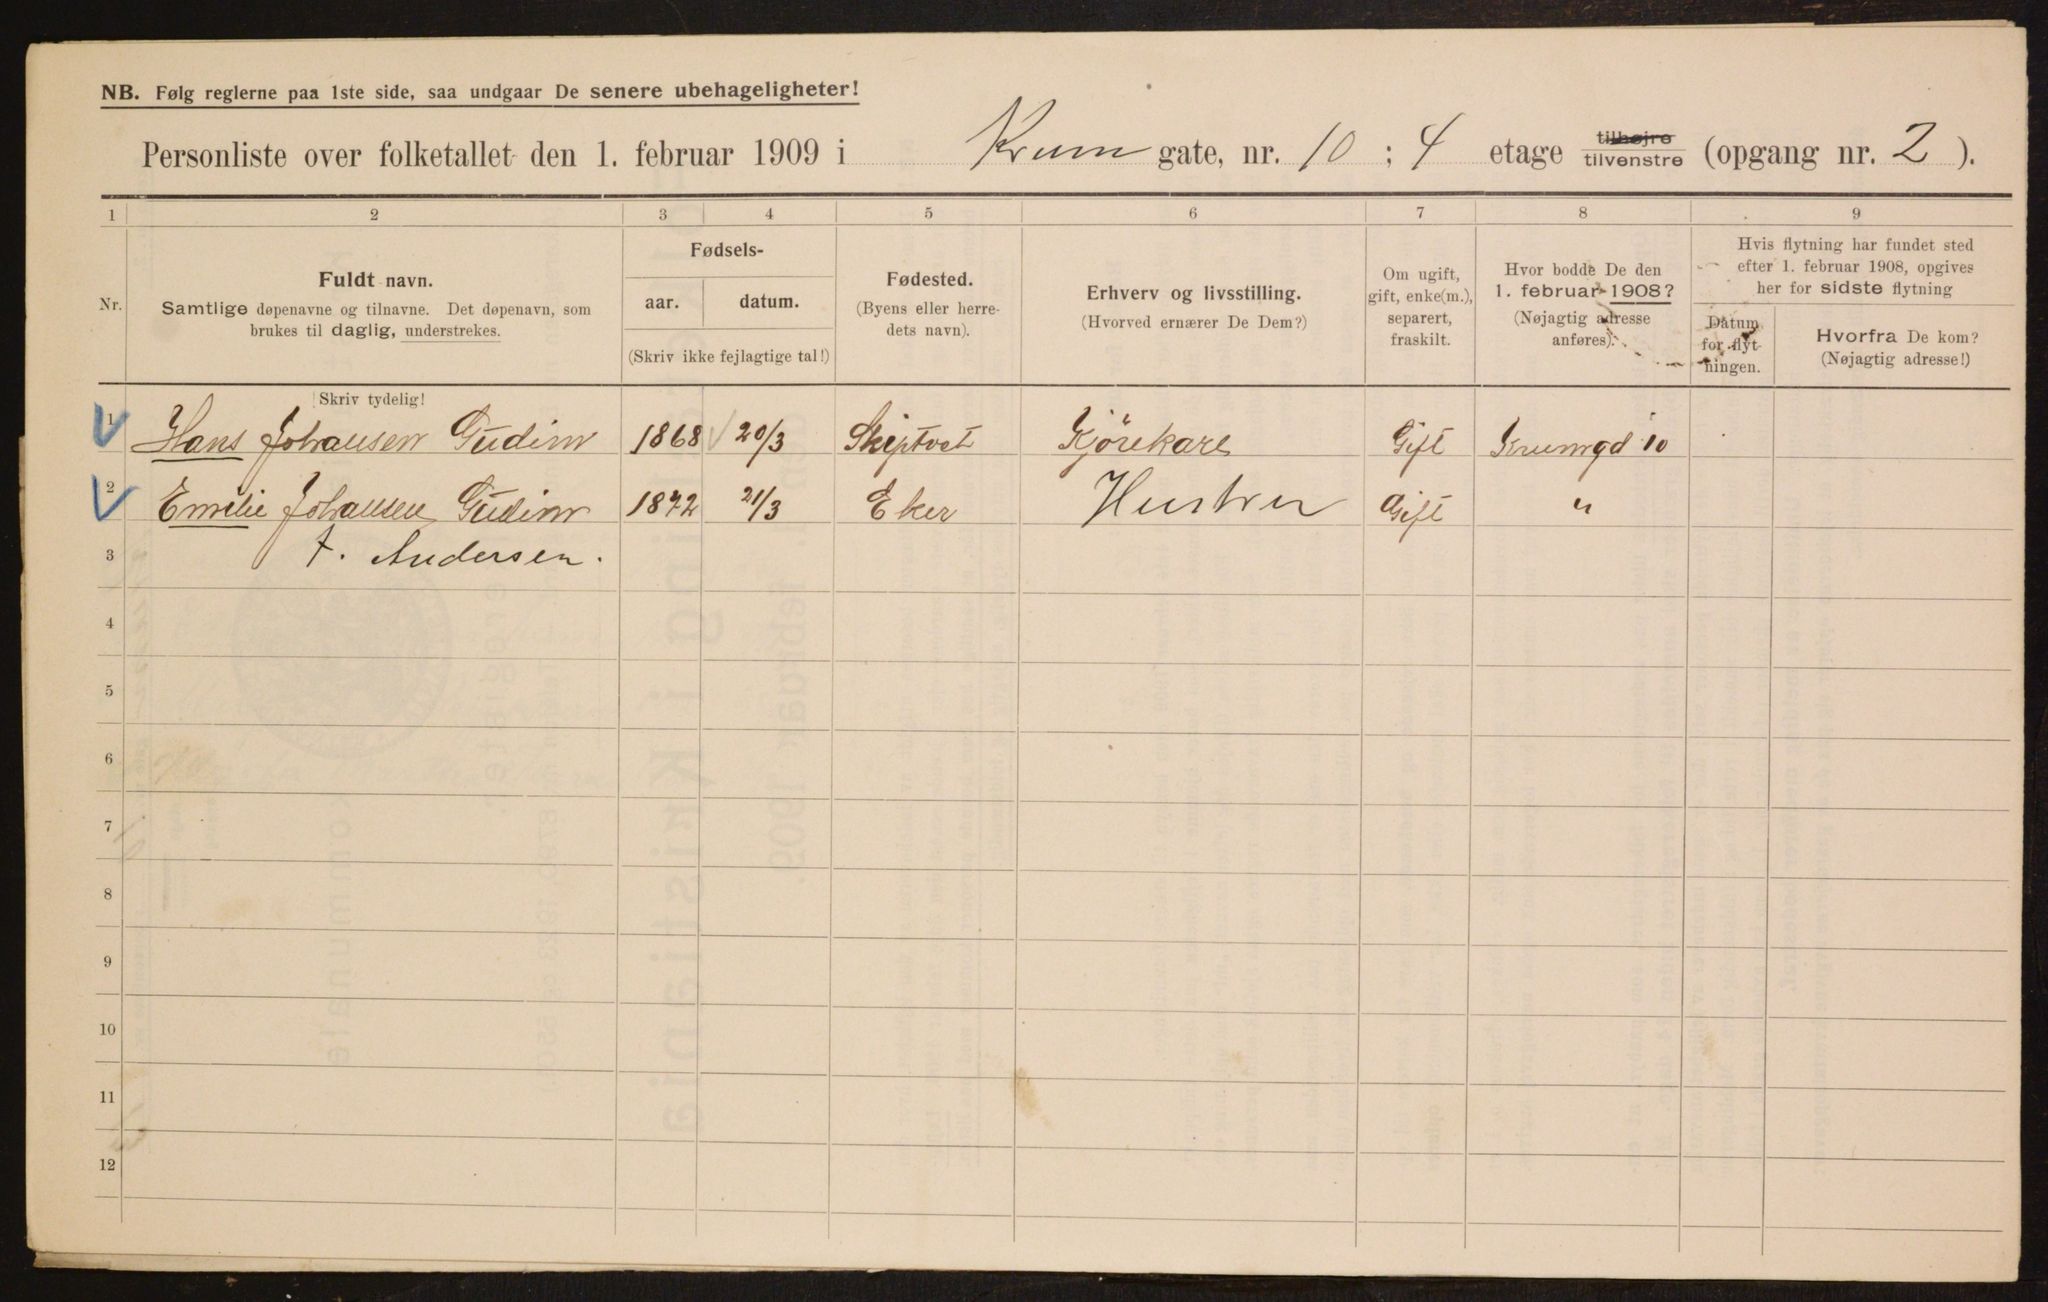 NB. Følg reglerne paa 1ste side, saa undgaar De senere ubehageligheter!
Personliste over folketallet den 1. februar 1909 i Krum gate, nr. 10 ; 4 etage tilhøjre tilvenstre (opgang nr. 2 ).
1 2 3 4 5 6 7 8 9
Nr.
Fuldt navn.
Samtlige døpenavne og tilnavne. Det døpenavn, som
brukes til daglig, understrekes.
Fødsels-
aar. datum.
(Skriv ikke fejlagtige tal!)
Fødested.
(Byens eller herre-
dets navn).
Erhverv og livsstilling.
(Hvorved ernærer De Dem?)
Om ugift,
gift, enke(m.),
separert,
fraskilt.
Hvor bodde De den
1. februar 1908?
(Nøjagtig adresse
anføres).
Hvis flytning har fundet sted
efter 1. februar 1908, opgives
her for sidste flytning
Datum
for flyt-
ningen.
Hvorfra De kom?
(Nøjagtig adresse!)
Skriv tydelig!
1 Hans Johansen Gudim 1868 20/3 Skiptvet Kjørekare Gift Krumgd 10
2 Emilie Johansen Gudim 1872 21/3 Eker Hustru Gift "
3 f. Andersen.
4
5
6
7
8
9
10
11
12